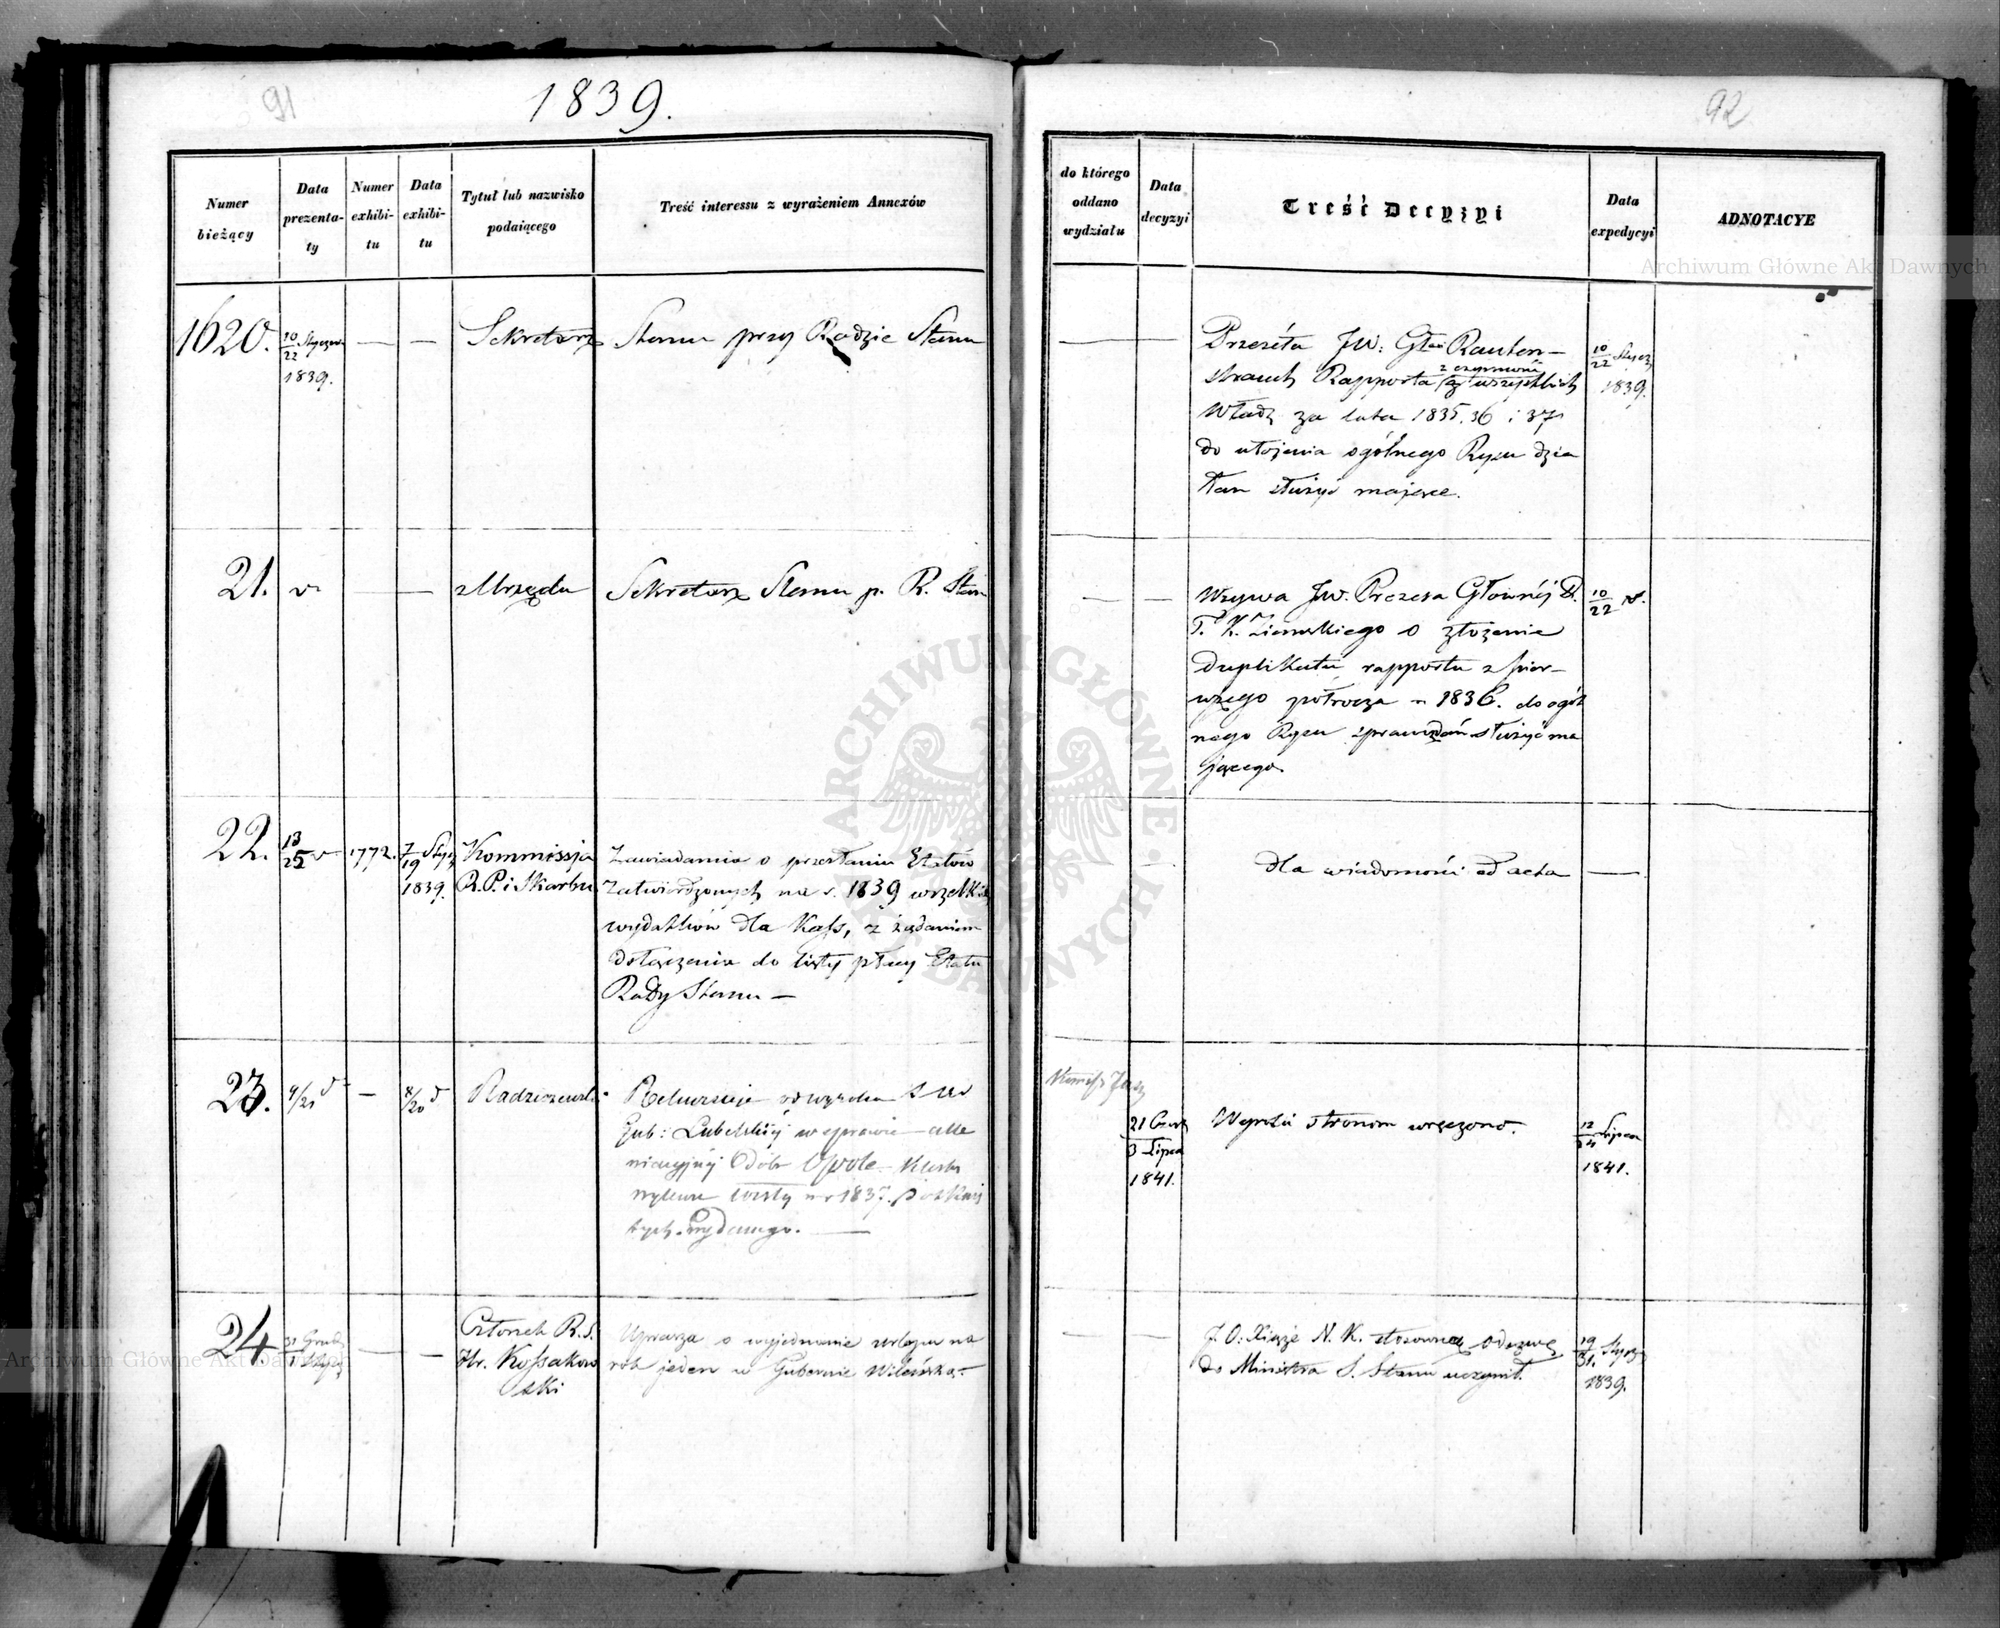 91
1839.
Numer bieżący
Data prezenta-ty
Numer exhibi-tu
Data exhibi-tu
Tytuł lub nazwisko podaiącego
Treść interessu z wyrażeniem Annexów
1620.
10/22 Stycznia
1839.
Sekretarz
Stanu przy Radzie Stanu
21.
z Urzędu
Sekretarz Stanu p. R. Stan
22.
13/25
1772.
7/19 Stycz
1839.
Kommissja
R. P. i Skarbu
Zawiadamia o przesłaniu Etatów
zatwierdzonych na r. 1839 wszelkich
wydatków dla Kass, z żądaniem
dołączenia do listy płacy Etatu
Rady Stanu —
23.
9/21
8/20
Radziszewski
Rekursuje od wyroku
Gub: Lubelskiéj w sprawie
Dóbr Opole
1837.
wydanego.
24.
31 Grud
Członek R. S.
Hr. Kossakow
ski
Uprasza o wyjednanie urlopu na
rok jeden w Gubernie Wileńską.
92
do którego oddano wydziału
Data decyzyi
Treść Decyzyi
Data expedycyi
ADNOTACYE
Przesyła JW: Głłowi Rauten-
strauch Rapporta z czynności wszystkich
Władz za lata 1835. 36 i 37
do ułożenia ogólnego Rysu dzia
łań służyć mające.
10/22 Stycz
1839.
Wzywa JW. Prezesa Głównéj D.
T. K. Ziemskiego o złożenie
duplikatu rapportu z pier-
wszego półrocza r. 1836. do ogól
nego Rysu sprawozdań służyć ma
jącego.
10/22
dla wiadomości ad acta
21 Czerw
3 Lipca
1841.
Wypisy stronom wręczono.
12/24 Lipca
1841.
J. O. Xiąże N. K. stosowną odezwę
do Ministra S. Stanu uczynił.
19/31. Stycz
1839.
Archiwum Główne Akt Dawnych
Archiwum Główne Akt Dawnych
ARCHIWUM GŁÓWNE AKT DAWNYCH